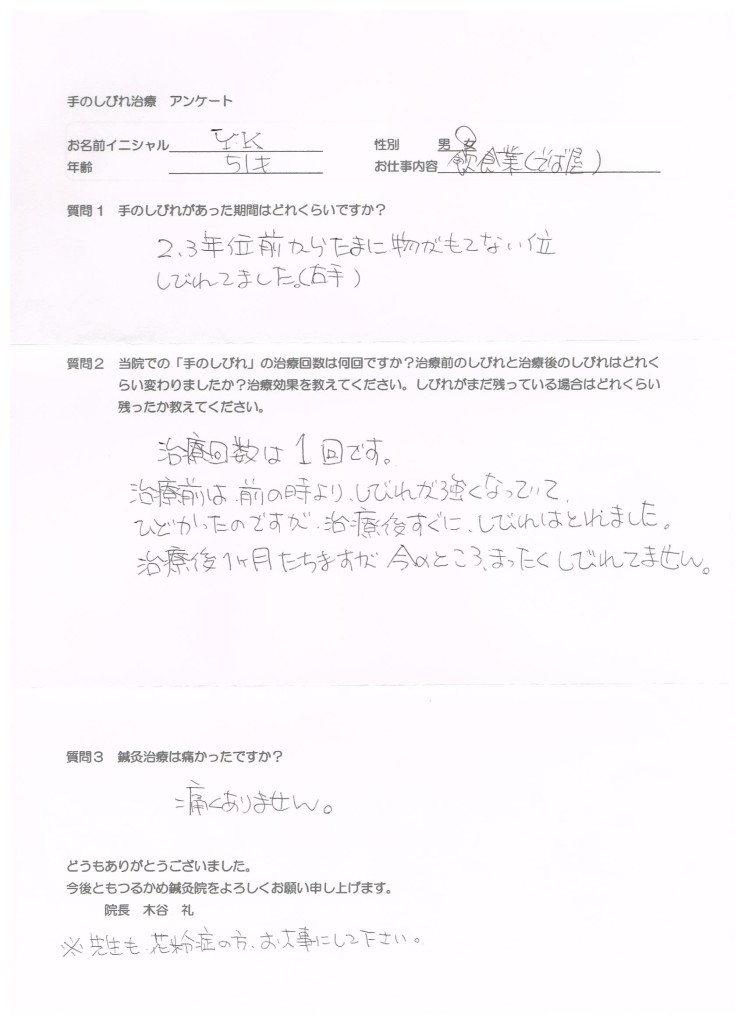 手のしびれ治療　アンケート
お名前イニシャル Y.K 性別 男 女
年齢 51才 お仕事内容 飲食業(そば屋)
質問1 手のしびれがあった期間はどれくらいですか？
2、3年位前からたまに物がもてない位
しびれてました。(右手)
質問2 当院での「手のしびれ」の治療回数は何回ですか？治療前のしびれと治療後のしびれはどれく
らい変わりましたか？治療効果を教えてください。しびれがまだ残っている場合はどれくらい
残ったか教えてください。
治療回数は1回です。
治療前は、前の時より、しびれが強くなっていて、
ひどかったのですが、治療後すぐに、しびれはとれました。
治療後1ヶ月たちますが 今のところ、まったくしびれてません。
質問3 鍼灸治療は痛かったですか？
痛くありません。
どうもありがとうございました。
今後ともつるかめ鍼灸院をよろしくお願い申し上げます。
院長　木谷　礼
※先生も、花粉症の方、お大事にして下さい。